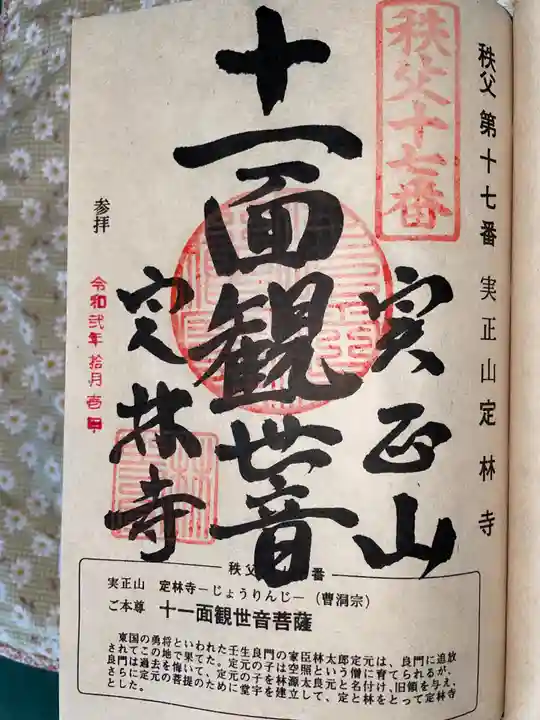 秩父 第十七番 実正山 定林寺
秩父十七番
実正山
十一面観世音
定林寺
参拝
令和弐年 拾月 壱日
秩父 番
実正山 定林寺―じょうりんじ―(曹洞宗)
ご本尊 十一面観世音菩薩
東国の勇将といわれた壬生良門の家臣林太郎定元は、良門に追放
されてこの地で果てた。定元の子は空照という僧に育てられるが、
良門は過去を悔いて、定元の子を林源太良元と名付け、旧領を与え、
さらに定元の菩提のために堂宇を建立して、定と林をとって定林寺
とした。